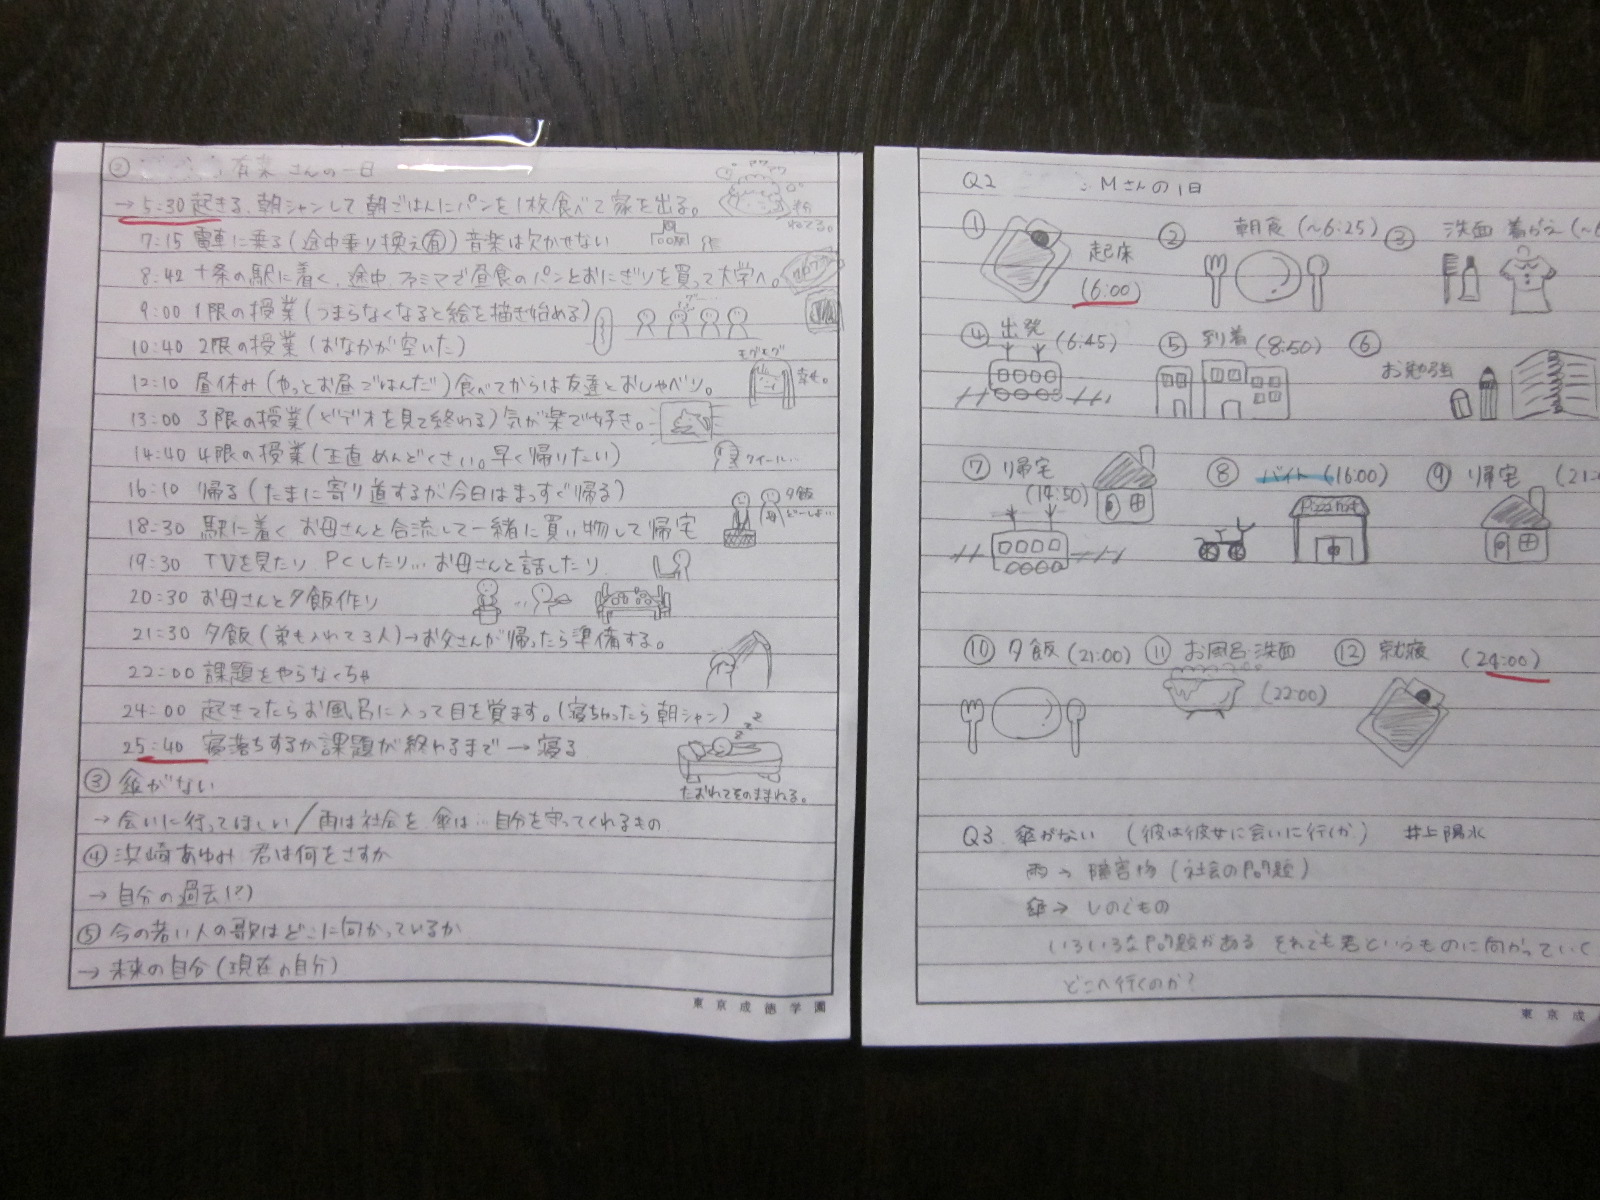 ② 有菜 さんの一日
→5:30 起きる、朝シャンして 朝ごはんにパンを1枚食べて 家を出る。
ねてる。
7:15 電車に乗る(途中乗り換え有) 音楽は欠かせない
8:42 十条の駅に着く、途中 ファミマで昼食のパンとおにぎりを買って大学へ。
9:00 1限の授業(つまらなくなると絵を描き始める)
10:40 2限の授業 (おなかが空いた)
モグモグ
12:10 昼休み(やっとお昼ごはんだ)食べてからは友達とおしゃべり。
幸せ。
13:00 3限の授業(ビデオを見て終わる)気が楽で好き。
14:40 4限の授業(正直 めんどくさい。早く帰りたい)
16:10 帰る(たまに寄り道するが今日はまっすぐ帰る)
夕飯
母
18:30 駅に着く お母さんと合流して一緒に買い物して帰宅
19:30 TVを見たり PCしたり… お母さんと話したり
20:30 お母さんと夕飯作り
21:30 夕飯(弟も入れて3人)→お父さんが帰ったら準備する。
22:00 課題をやらなくちゃ
24:00 起きてたらお風呂に入って目を覚ます。(寝ちゃったら朝シャン)
25:40 寝落ちするか課題が終わるまで → 寝る
zzz
たおれてそのままねる。
③ 傘がない
→ 会いに行ってほしい/雨は社会を 傘は…自分を守ってくれるもの
④ 浜崎あゆみ 君は何をさすか
→ 自分の過去(?)
⑤ 今の若い人の歌はどこに向かっているか
→ 未来の自分(現在の自分)
東京成徳学園
Q2 Mさんの1日
① 起床 (6:00)
② 朝食 (~6:25)
③ 洗面 着がえ
④ 出発 (6:45)
⑤ 到着 (8:50)
⑥ お勉強
⑦ 帰宅 (14:50)
⑧ バイト (16:00)
Pizza Hut
⑨ 帰宅
⑩ 夕飯 (21:00)
⑪ お風呂・洗面 (22:00)
⑫ 就寝 (24:00)
Q3. 傘がない (彼は彼女に会いに行くか) 井上陽水
雨→ 障害物 (社会の問題)
傘→ しのぐもの
いろいろな問題がある それでも君というものに向かっていく
どこへ行くのか?
東京成